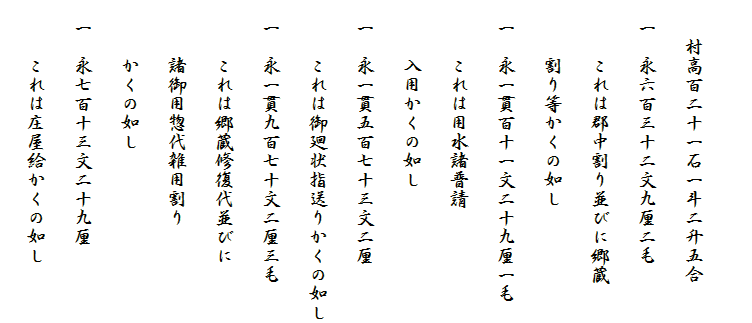 村高百二十一石一斗二升五合
一 永六百三十二文九厘二毛
これは郡中割り並びに郷蔵
割り等かくの如し
一 永一貫百十一文二十九厘一毛
これは用水諸普請
入用かくの如し
一 永一貫五百七十三文二厘
これは御廻状指送りかくの如し
一 永一貫九百七十文二厘三毛
これは郷蔵修復代並びに
諸御用惣代雑用割り
かくの如し
一 永七百十三文二十九厘
これは庄屋給かくの如し